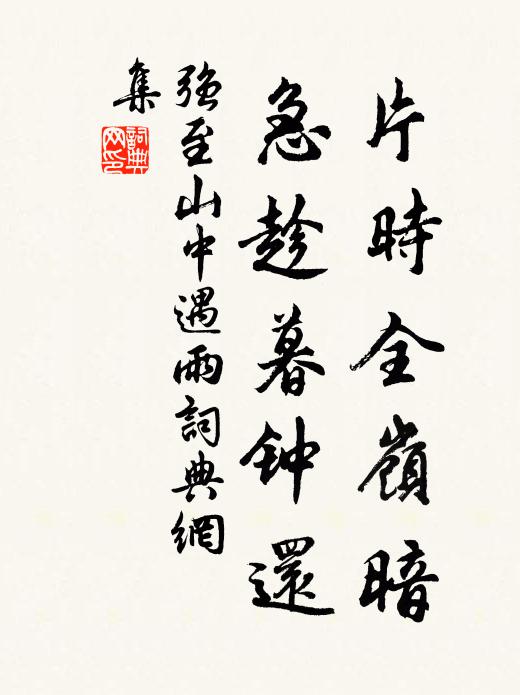 片時全嶺暗
急趁暮钟還
強至山中遇雨詞典網
集
詞典
网印